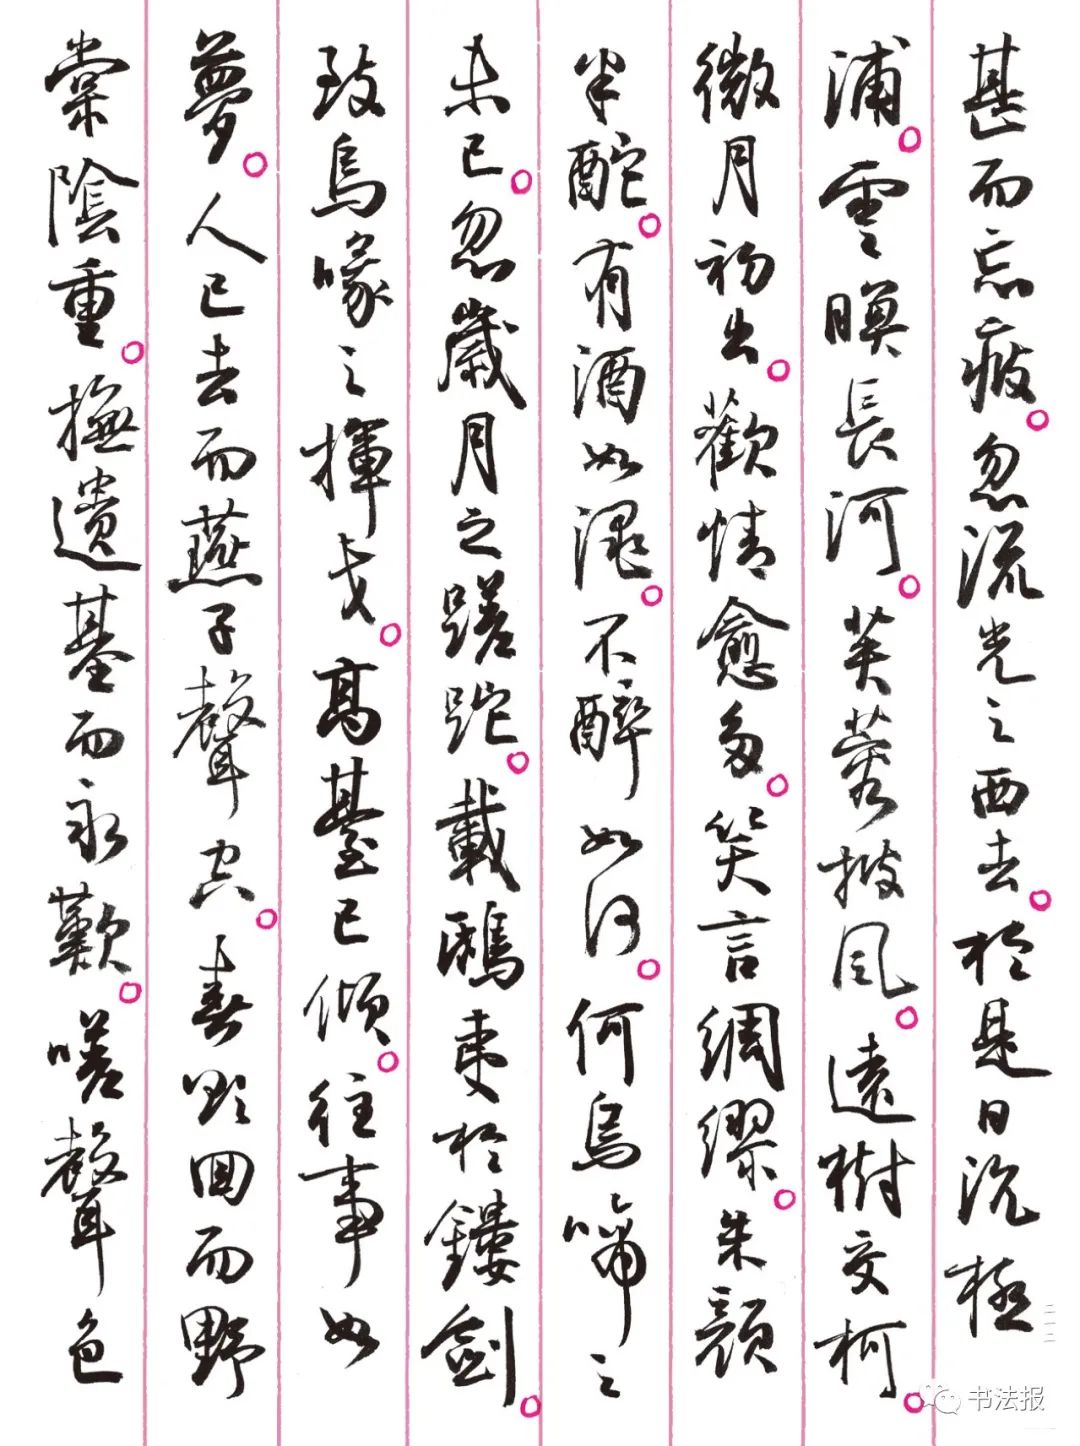 甚而忘疲。忽流光之西去。於是日沉極
浦。雲暝長河。芙蓉披風。遠樹交柯。
微月初出。歡情愈多。笑言綢繆。朱顏
半酡。有酒如澠。不醉如何。何烏啼之
未已。忽歲月之蹉跎。載鴟夷於鏤劍。
致烏喙之揮戈。高臺已傾。往事如
夢。人已去而燕子聲空。春回而野
棠陰重。撫遺基而永歎。嗟聲色
二一二
书法报